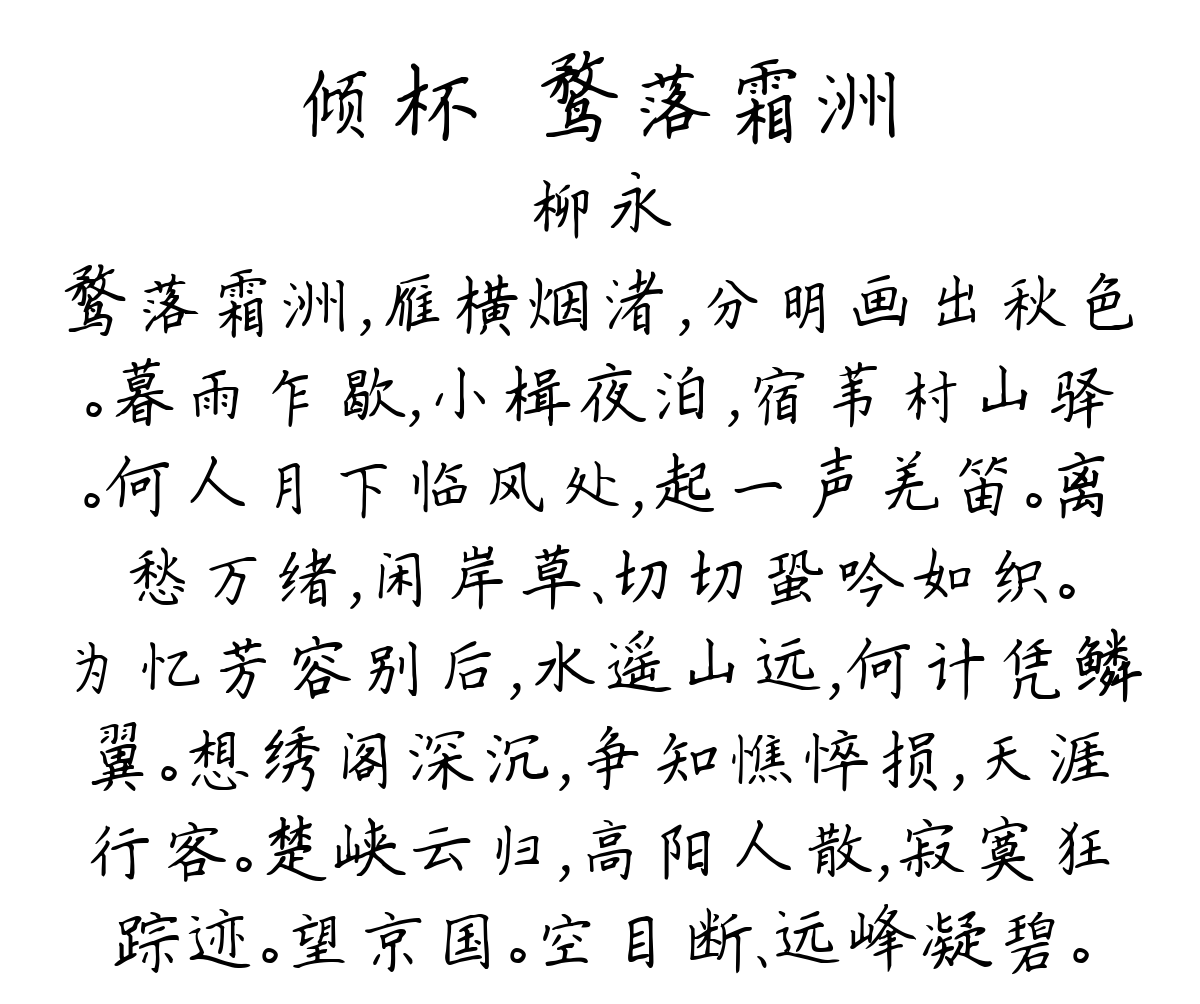 倾杯 鹜落霜洲
柳永
鹜落霜洲,雁横烟渚,分明画出秋色
。暮雨乍歇,小楫夜泊,宿苇村山驿
。何人月下临风处,起一声羌笛。离
愁万绪,闲岸草、切切蛩吟如织。
为忆芳容别后,水遥山远,何计凭鳞
翼。想绣阁深沉,争知憔悴损,天涯
行客。楚峡云归,高阳人散,寂寞狂
踪迹。望京国。空目断、远峰凝碧。